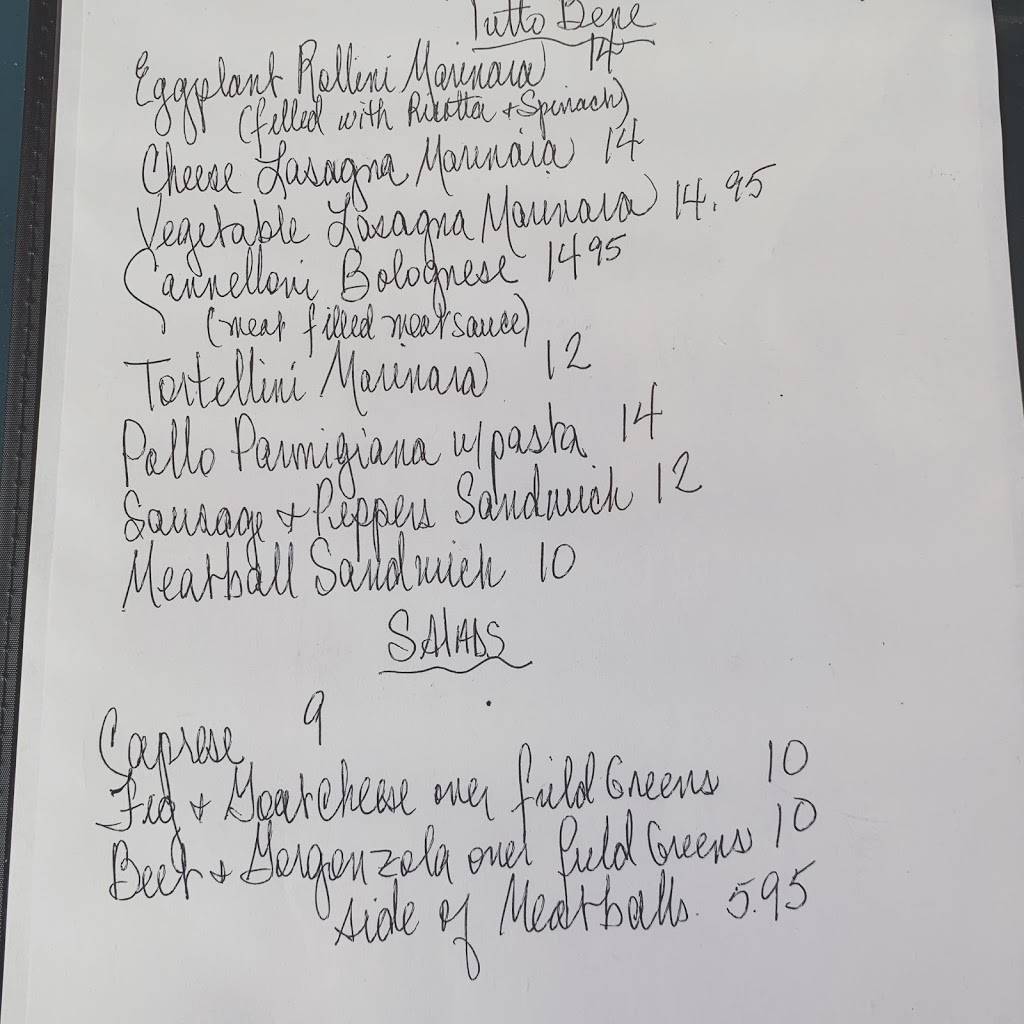 Tutto Bene
Eggplant Rollini Marinara 14
(filled with Ricotta + Spinach)
Cheese Lasagna Marinara 14
Vegetable Lasagna Marinara 14.95
Cannelloni Bolognese 14 95
(meat filled meatsauce)
Tortellini Marinara 12
Pollo Parmigiana w/pasta 14
Sausage + Peppers Sandwich 12
Meatball Sandwich 10
SAlADS
Caprese 9
Fig + Goat Cheese over field Greens 10
Beet + Gorgonzola over field Greens 10
side of Meatballs. 5.95